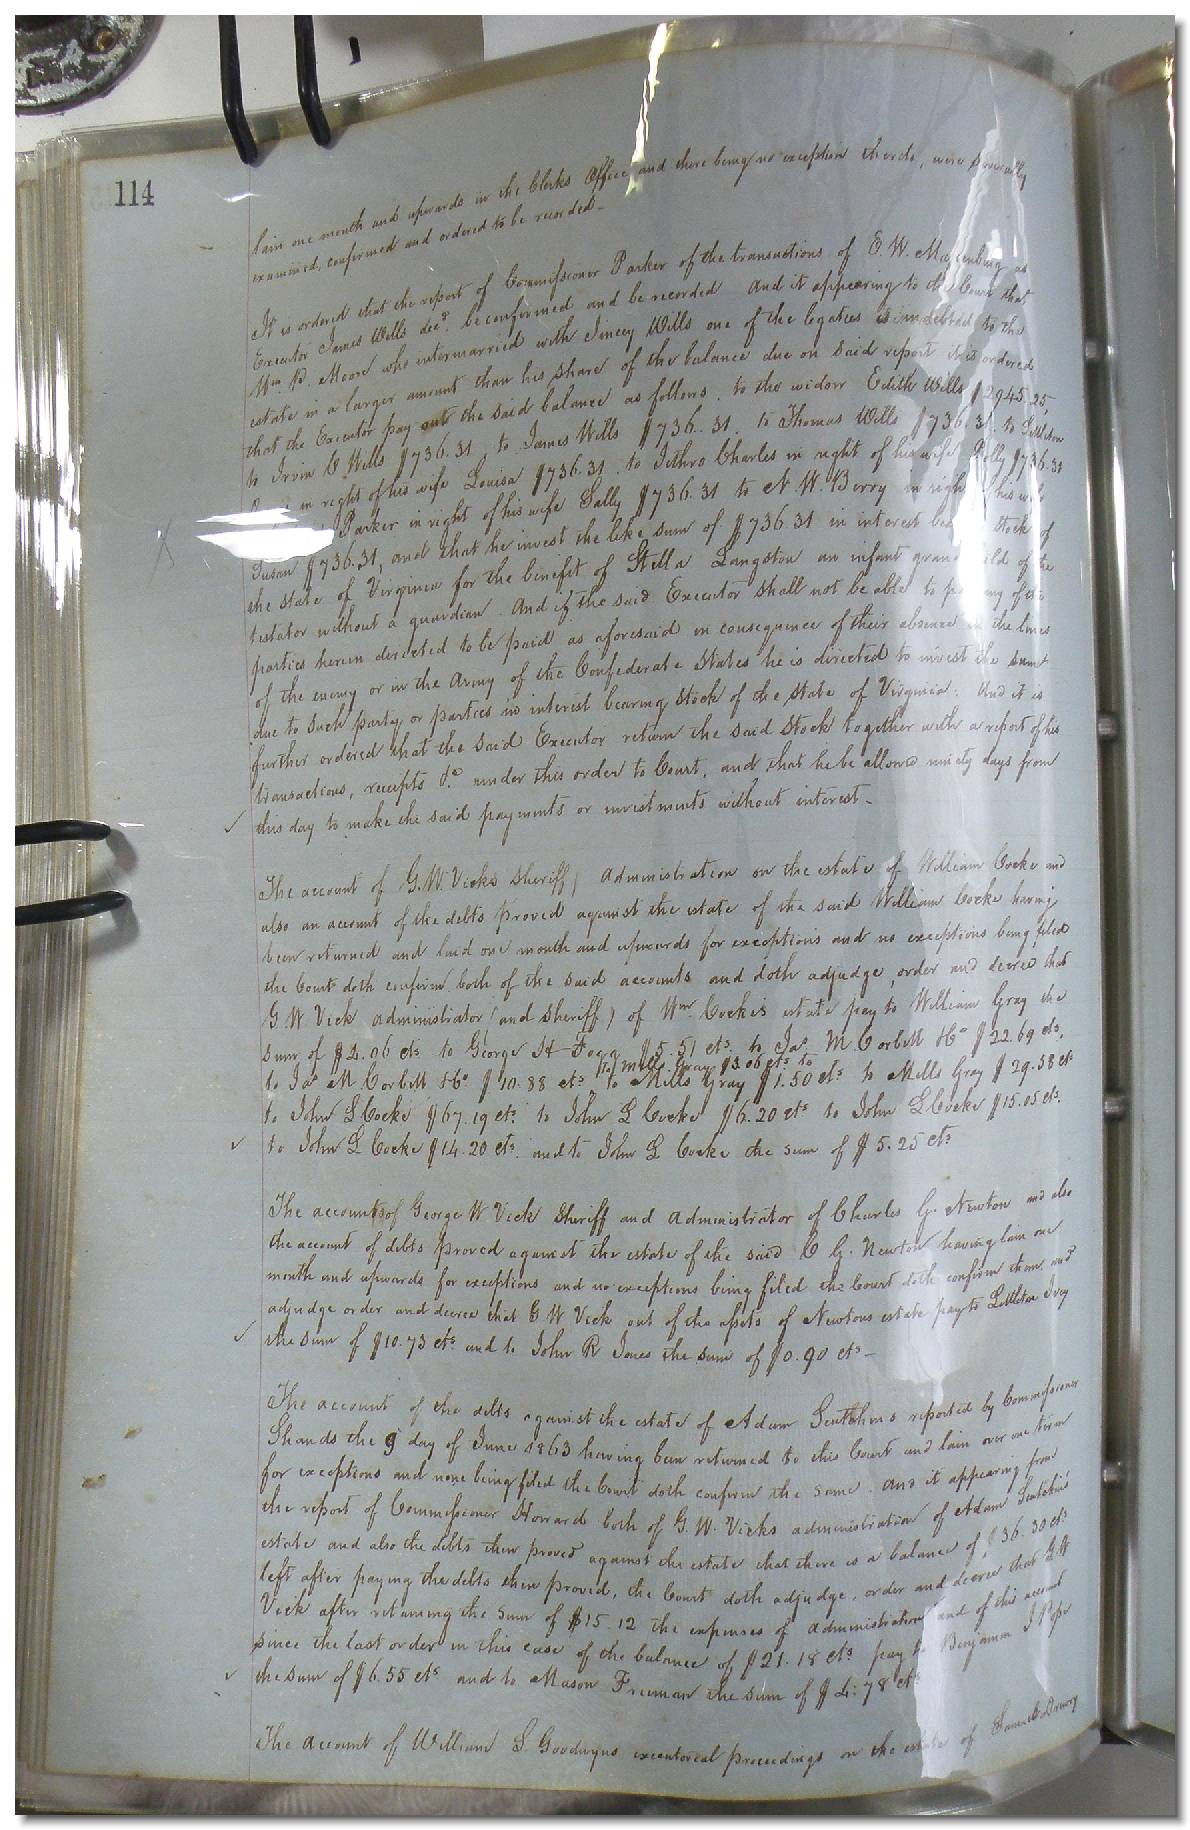 114
lain one month and upwards in the Clerks Office and there being no exception thereto, were severally
examined, confirmed and ordered to be recorded.
It is ordered that the report of Commissioner Parker of the transactions of E. W. as
Executor James Wills decd. be confirmed and be recorded And it appearing to the Court that
Wm B. Moore who intermarried with Jincey Wills one of the legatees is indebted to the
estate in a larger amount than his share of the balance due on said report it is ordered
that the Executor pay out the said balance as follows, to the widow Edith Wills $2945.25,
to Irvin C Wills $736.31, to James Wills $736.31, to Thomas Wills $736.31. to Littleton
in right of his wife Louisa $736.31. to Jethro Charles in right of his wife Polly $736.31
Parker in right of his wife Sally $736.31 to N. W. Berry in right his wife
Susan $736.31, and that he invest the like sum of $736.31 in interest stock of
the State of Virginia for the benefit of Stella Langston an infant of the
testator without a guardian. And if the said Executor shall not be able to of the
parties herein directed to be paid as aforesaid in consequence of their absence the lines
of the enemy or in the Army of the Confederate States he is directed to invest the sum
due to such party or parties in interest bearing Stock of the State of Virginia: And it is
further ordered that the said Executor return the said Stock together with a report of his
transactions, receipts &c. under this order to Court, and that he be allowed ninety days from
this day to make the said payments or investments without interest.
The account of G. W. Vicks Sheriff) Administration on the estate of William Cocke and
also an account of the debts proved against the estate of the said William Cocke having
been returned and laid one month and upwards for exceptions and no exceptions being filed
the Court doth confirm both of the said accounts and doth adjudge, order and decree that
G W Vick administrator (and Sheriff) of Wm Cocke's estate pay to William Gray the
Sum of $2.06 cts to George H Fogg $5.51 cts to Jas. M Corbett &Co $22.69 cts,
to Mills Gray $3.06 cts to
to Jas M Corbett &Co $10.88 cts to Mills Gray $1.50 cts to Mills Gray $29.58 cts
to John L Cocke $67.19 cts to John L Cocke $6.20 cts to John L Cocke $15.05 cts.
to John L Cocke $14.20 cts. and to John L Cocke the sum of $5.25 cts
The accounts of George W Vick Sheriff and Administrator of Charles G. Newton and also
the account of debts proved against the estate of the said C G. Newton having lain one
month and upwards for exceptions and no exceptions being filed the Court doth confirm them and
adjudge order and decree that G W Vick out of the assets of Newtons estate pay to Littleton Ivey
the sum of $10.73 cts and to John R Jones the sum of $0.90 cts
The account of the debts against the estate of Adam reported by Commissioner
Shands the 9 day of June 1863 having been returned to this Court and lain over one term
for exceptions and none being filed the Court doth confirm the same. And it appearing from
the report of Commissioner Howard both of G. W. Vicks administration of Adam
estate and also the debts then proved against the estate that there is a balance of $36.30 cts
left after paying the debts then proved, the Court doth adjudge, order and decree that G W
Vick after retaining the sum of $15.12 the expenses of Administration and of this account
since the last order in this case of the balance of $21.18 cts pay to Benjamin J Pope
the sum of $6.55 cts and to Mason Freeman the sum of $4.78 cts
The account of William S. Goodwyns executorial proceedings on the estate of Samuel Drewry